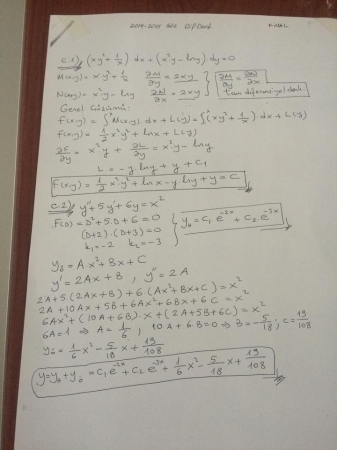 2014-2015 Güz Dif. Denk. FİNAL
C.1) (xy²+1/x) dx + (x²y-lny) dy=0
M(x,y) = xy²+1/x ∂M/∂y = 2xy
N(x,y) = x²y-lny ∂N/∂x = 2xy } ∂M/∂y = ∂N/∂x Tam diferansiyel denk.
Genel Çözümü:
F(x,y) = ∫M(x,y).dx + L(y) = ∫(xy²+1/x).dx + L(y)
F(x,y) = 1/2 x²y² + lnx + L(y)
∂F/∂y = x²y + ∂L/∂y = x²y - lny
L = -y lny + y + C₁
F(x,y) = 1/2 x²y² + lnx - y lny + y = C
C.2) y''+5y'+6y=x²
F(D) = D²+5.D+6=0
(D+2).(D+3)=0
k₁=-2 k₂=-3 } yₕ = C₁ e^-2x + C₂ e^-3x
yö = A.x²+Bx+C
y' = 2Ax+B , y'' = 2A
2A+5(2Ax+B)+6(Ax²+Bx+C) = x²
2A+10Ax+5B+6Ax²+6Bx+6C = x²
6Ax²+(10A+6B).x+(2A+5B+6C) = x²
6A=1 ⇒ A=1/6 , 10A+6B=0 ⇒ B=-5/18 ; C=19/108
yö = 1/6 x² - 5/18 x + 19/108
y=yₕ+yö = C₁e^-2x + C₂e^-3x + 1/6 x² - 5/18 x + 19/108